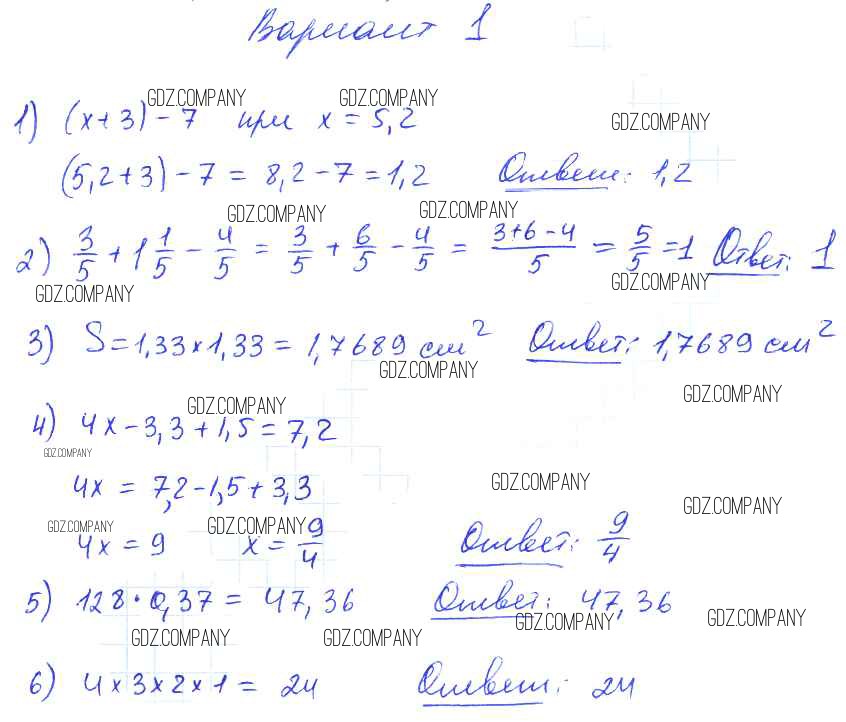 Вариант 1
GDZ.COMPANY GDZ.COMPANY
1) (x+3)-7 при x=5,2 GDZ.COMPANY
(5,2+3)-7=8,2-7=1,2 Ответ: 1,2
GDZ.COMPANY GDZ.COMPANY
2) 3/5+1 1/5-4/5=3/5+6/5-4/5=(3+6-4)/5=5/5=1 Ответ: 1
GDZ.COMPANY GDZ.COMPANY
3) S=1,33×1,33=1,7689 см² Ответ: 1,7689 см²
GDZ.COMPANY GDZ.COMPANY
GDZ.COMPANY
4) 4x-3,3+1,5=7,2
GDZ.COMPANY
4x=7,2-1,5+3,3 GDZ.COMPANY GDZ.COMPANY
GDZ.COMPANY GDZ.COMPANY
4x=9 x=9/4 Ответ: 9/4
5) 128·0,37=47,36 Ответ: 47,36
GDZ.COMPANY GDZ.COMPANY
GDZ.COMPANY GDZ.COMPANY
6) 4×3×2×1=24 Ответ: 24